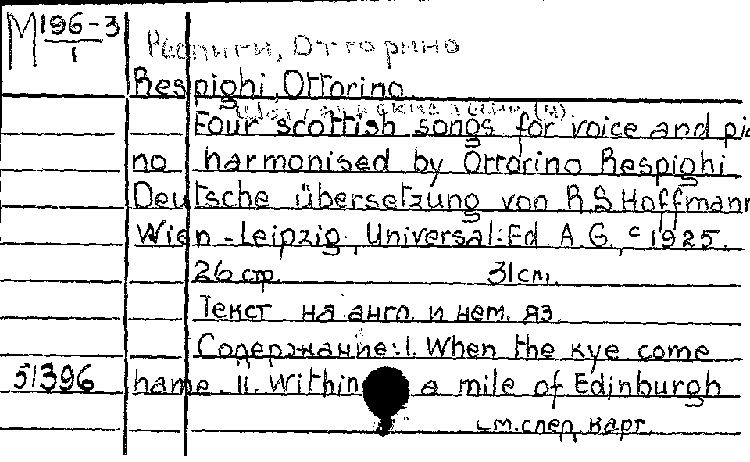 М 196-3
1
Респиги, Отторино
Respighi, Ottorino.
Four scottish songs for voice and pia
no harmonised by Ottorino Respighi
Deutsche übersetzung von R.S. Hoffmann
Wien - Leipzig, Universal-Ed A.G., c 1925.
26 стр. 31 см.
Текст на англ. и нем. яз.
Содержание: I. When the kye come
51396 hame. II. Within a mile of Edinburgh
См. след. карт.